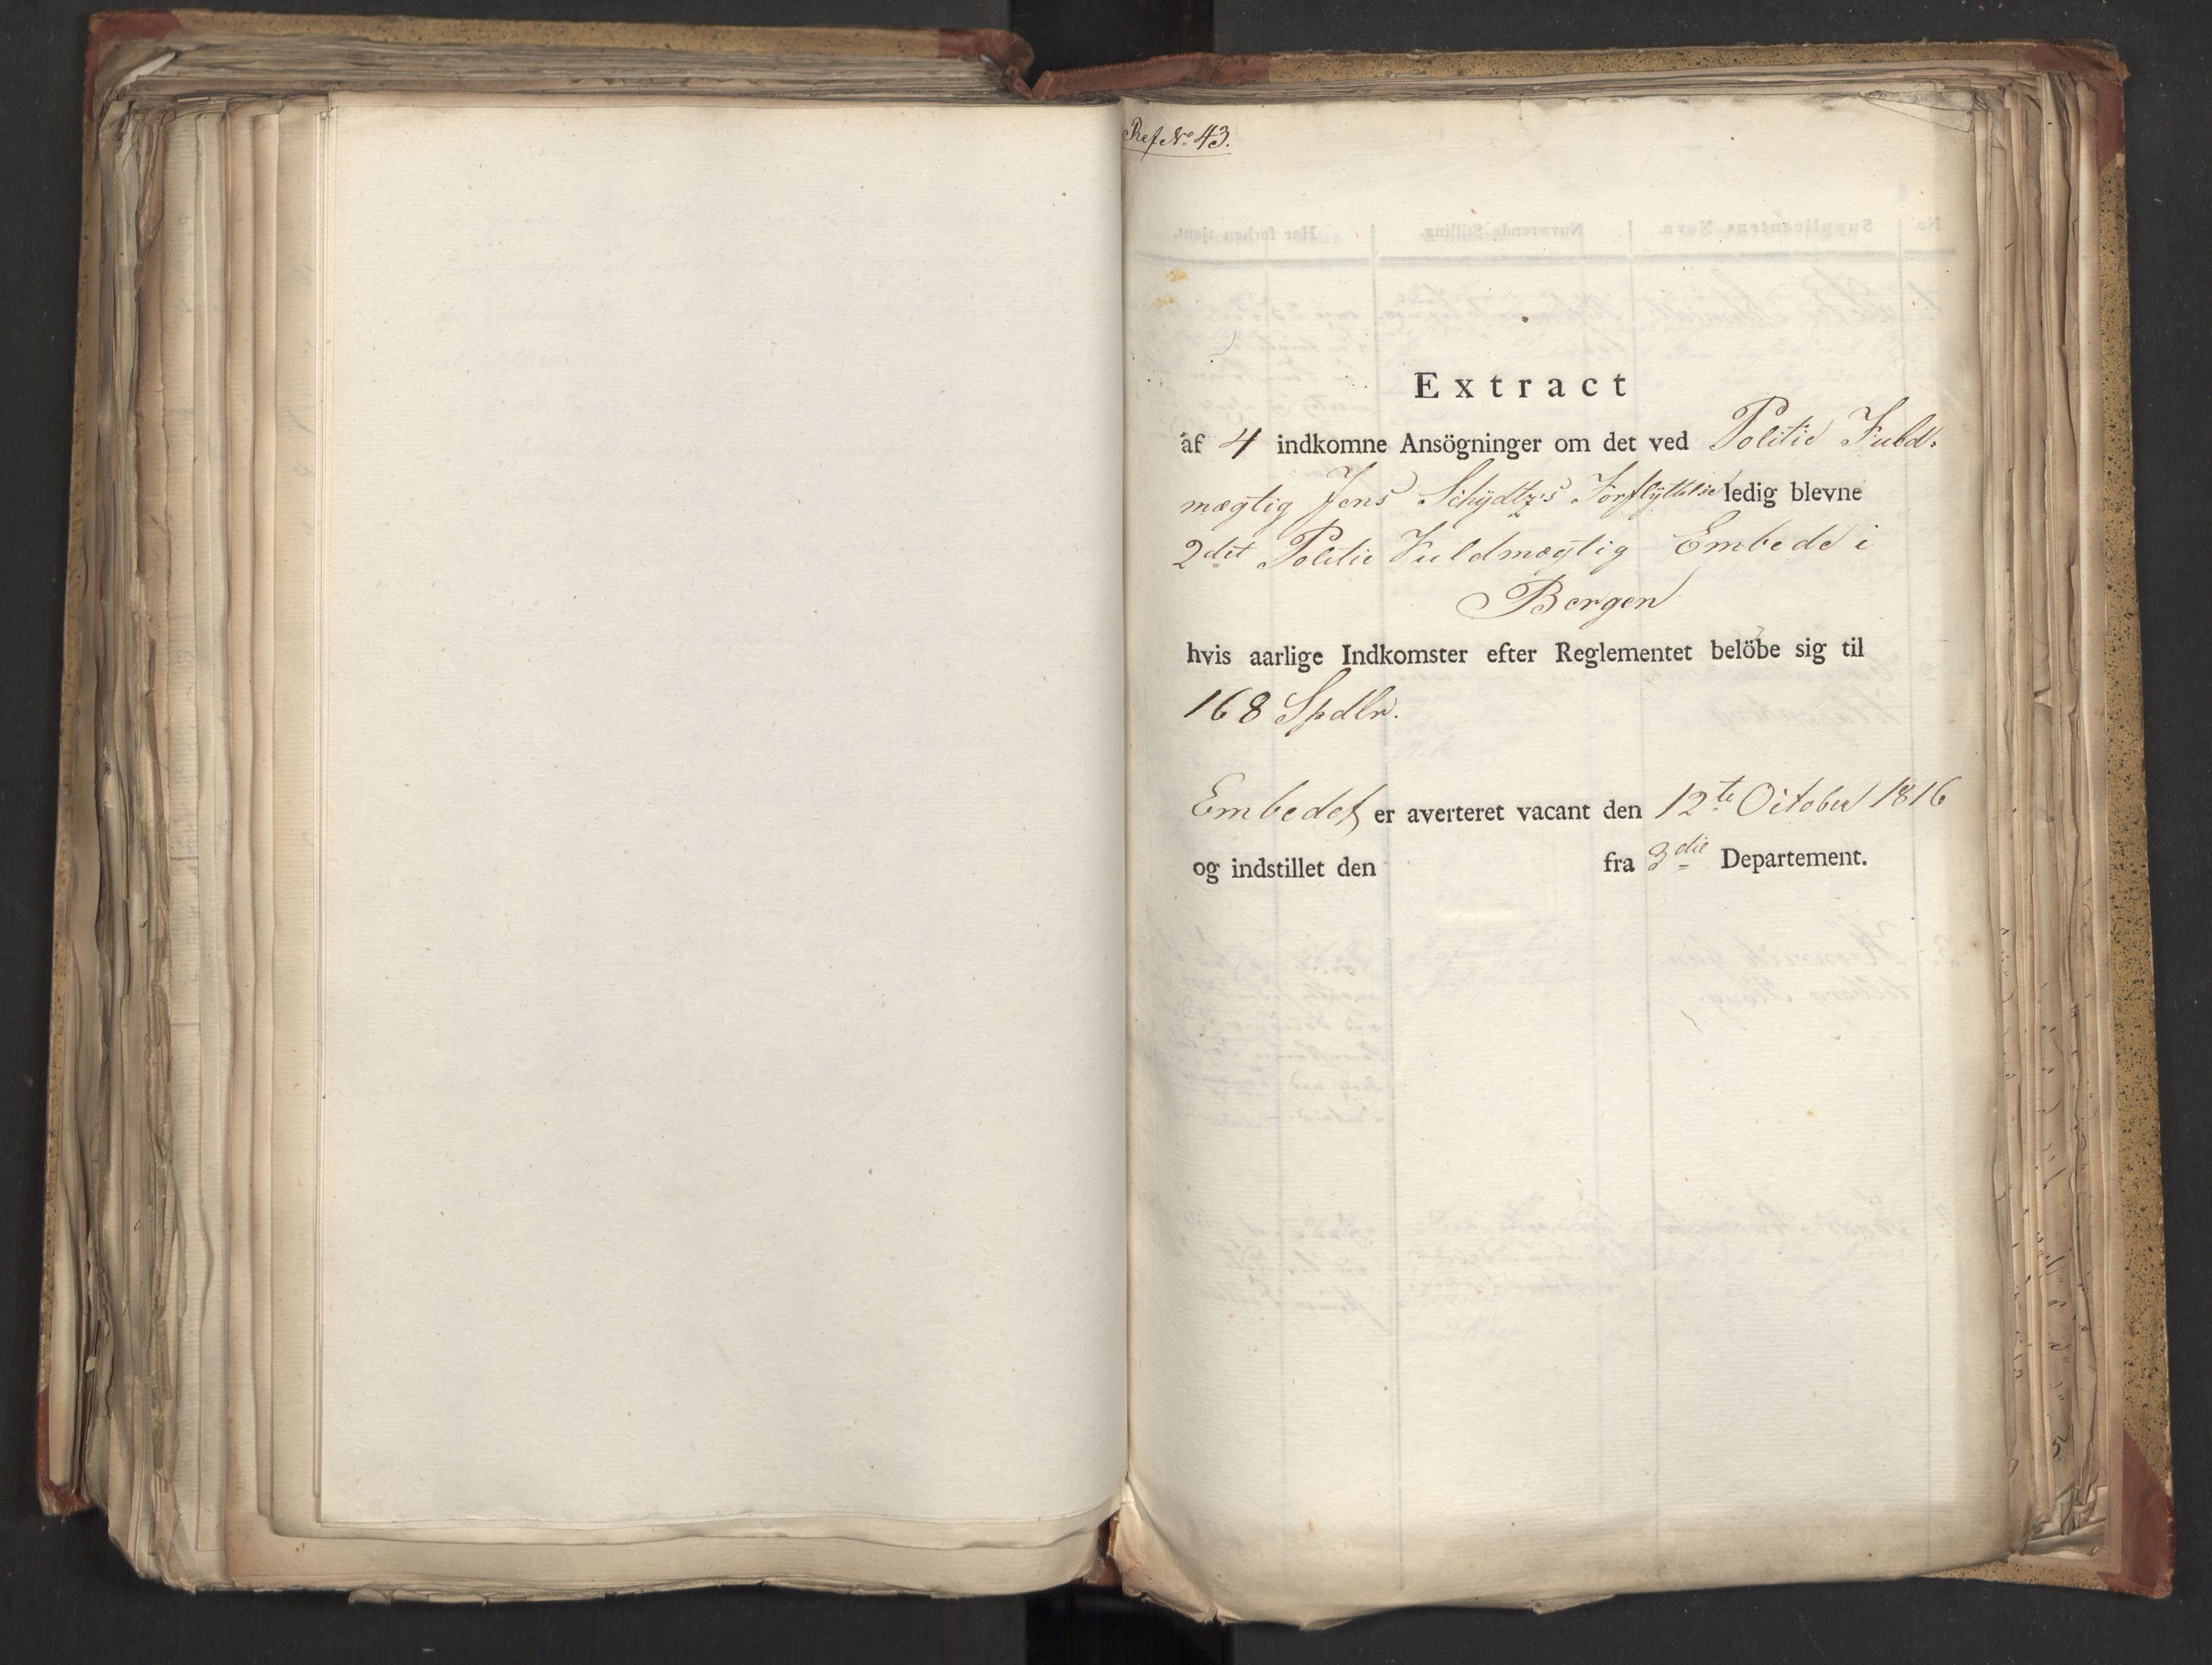 Ref No 43.
Extract
af 4 indkomne Ansögninger om det ved Politie Fuld-
mægtig Jens Schydtz's Forflyttelse ledig blevne
2det Politie Fuldmægtig Embede i
Bergen
hvis aarlige Indkomster efter Reglementet belöbe sig til
168 Spdlr.
Embedet er averteret vacant den 12te October 1816
og indstillet den fra 3die Departement.